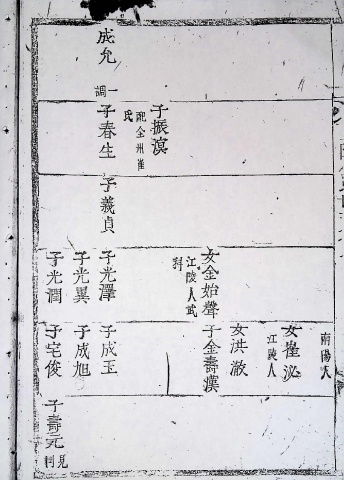 南陽人
女崔泌
江陵人
女洪澈
女金始聲
江陵人武科
子金壽漢
子振溟
配全州崔氏
成允
一調
子春生
子義貞
子光澤
子成玉
子光異
子成旭
子光潤
子宅俊
子壽元
見刊